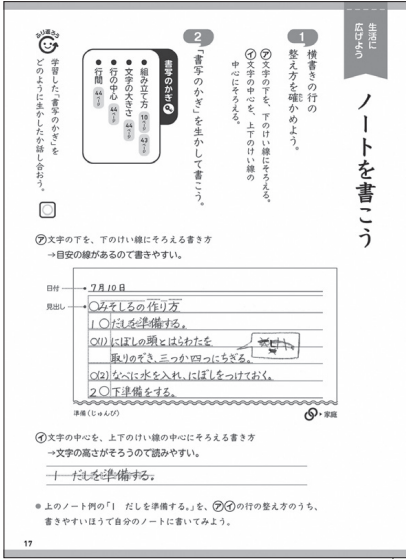 生活に
広げよう
ノートを書こう
1 横書きの行の
整え方を確かめよう。
㋐文字の下を、下のけい線にそろえる。
㋑文字の中心を、上下のけい線の
中心にそろえる。
2 「書写のかぎ」を生かして書こう。
書写のかぎ
●組み立て方 10ページ 43ページ
●文字の大きさ 44ページ
●行の中心 44ページ
●行間 44ページ
ふり返ろう
学習した、「書写のかぎ」を
どのように生かしたか話し合おう。
㋐文字の下を、下のけい線にそろえる書き方
→目安の線があるので書きやすい。
日付
7月10日
見出し
○みそしるの作り方
1○だしを準備する。
○(1)にぼしの頭とはらわたを
取りのぞき、三つか四つにちぎる。
○(2)なべに水を入れ、にぼしをつけておく。
2○下準備をする。
準備(じゅんび)
・家庭
㋑文字の中心を、上下のけい線の中心にそろえる書き方
→文字の高さがそろうので読みやすい。
1 だしを準備する。
●上のノート例の「1 だしを準備する。」を、㋐㋑の行の整え方のうち、
書きやすいほうで自分のノートに書いてみよう。
17